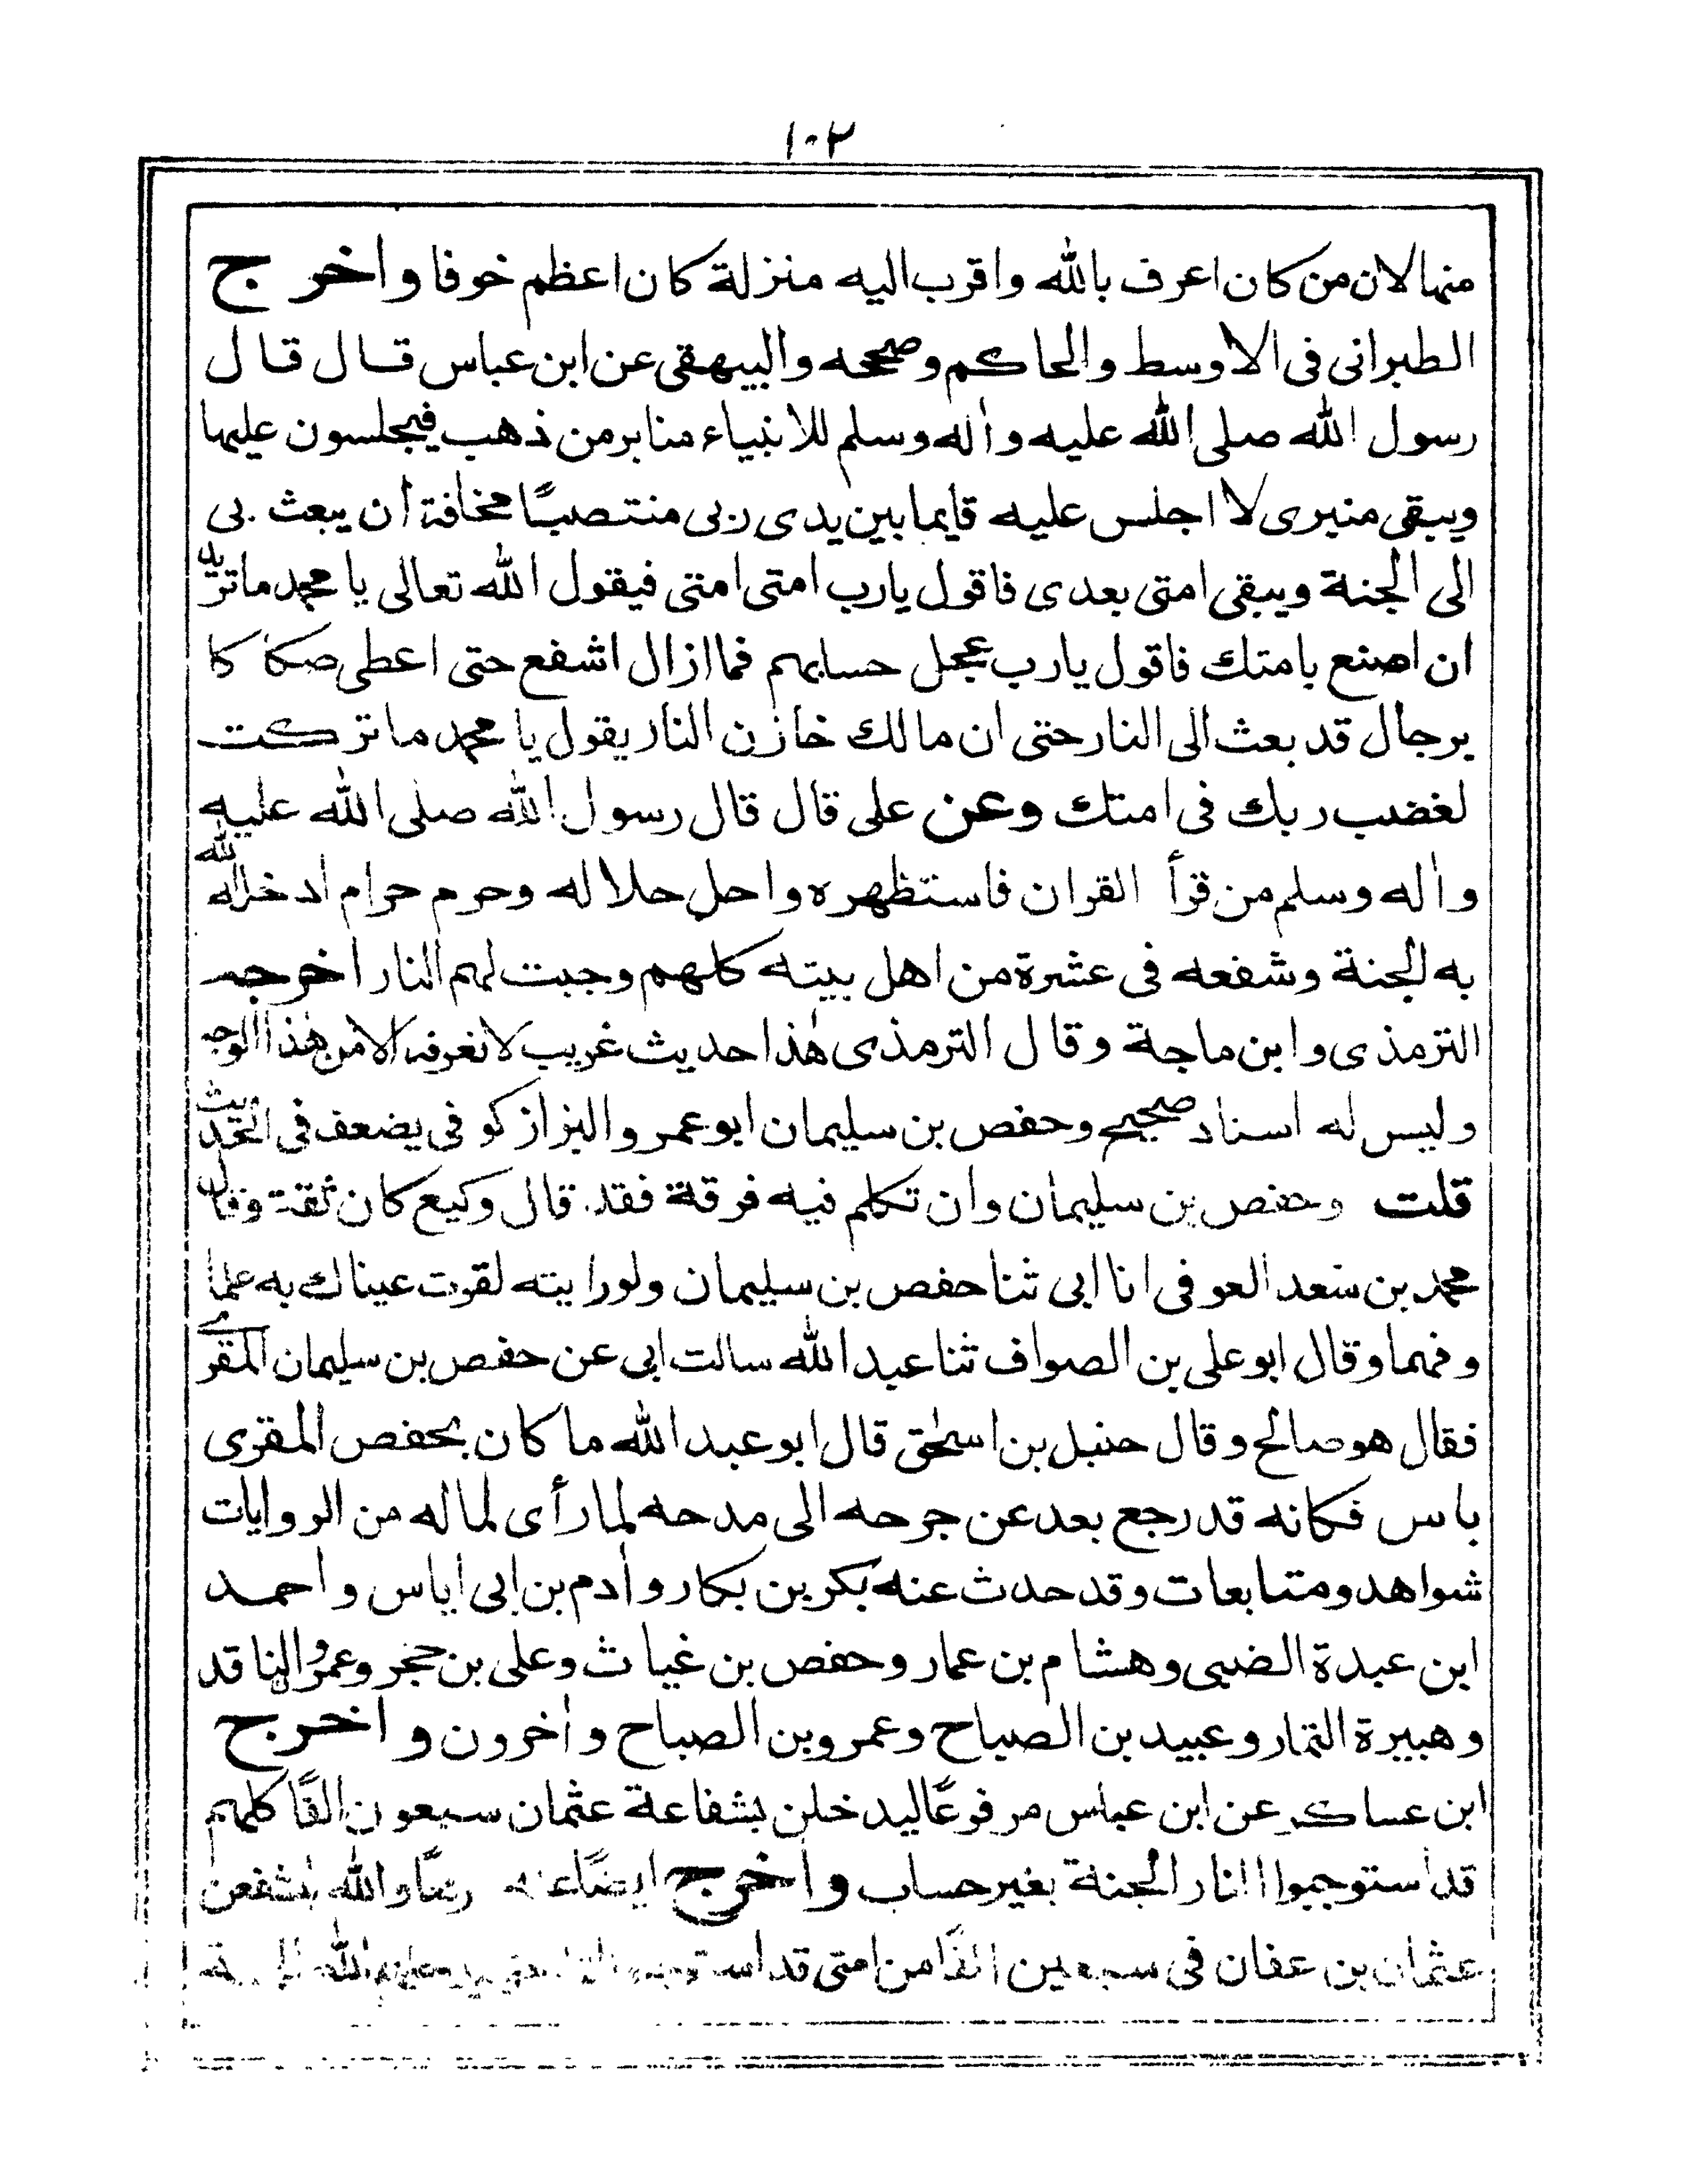 ١٠٢
منها لان من كان اعرف بالله واقرب اليه منزلة كان اعظم خوفا واخرج
الطبرانى فى الاوسط والحاكم وصححه والبيهقى عن ابن عباس قال قال
رسول الله صلى الله عليه واٰله وسلم للانبياء منابر من ذهب فيجلسون عليها
ويبقى منبرى لا اجلس عليه قايما بين يدى ربى منتصبًا مخافة ان يبعث بى
الى الجنة ويبقى امتى بعدى فاقول يارب امتى امتى فيقول الله تعالى يا محمد ما تريد
ان اصنع بامتك فاقول يارب عجل حسابهم فما ازال اشفع حتى اعطى صكا كا
برجال قد بعث الى النار حتى ان مالك خازن النار يقول يا محمد ما تركت
لغضب ربك فى امتك وعن على قال قال رسول الله صلى الله عليه
واٰله وسلم من قرأ القران فاستظهره واحل حلاله وحرم حرامه ادخله الله
به الجنة وشفعه فى عشرة من اهل بيته كلهم وجبت لهم النار اخرجه
الترمذى وابن ماجة وقال الترمذى هٰذا حديث غريب لا نعرفه الا من هٰذا الوجه
وليس له اسناد صحيح وحفص بن سليمان ابو عمر والبزاز كوفى يضعف فى الحديث
قلت وحفص بن سليمان وان تكلم فيه فرقة فقد قال وكيع كان ثقة وقال
محمد بن سعد العوفى انا ابى ثنا حفص بن سليمان ولو رايته لقرت عيناك به علما
وفهما وقال ابو على بن الصواف ثنا عبد الله سالت ابى عن حفص بن سليمان المقرى
فقال هو صالح وقال حنبل بن اسحٰق قال ابو عبد الله ما كان بحفص المقرى
باس فكانه قد رجع بعد عن جرحه الى مدحه لما رأى لما له من الروايات
شواهد ومتابعات وقد حدث عنه بكر بن بكار واٰدم بن ابى اياس واحمد
ابن عبدة الضبى وهشام بن عمار وحفص بن غياث وعلى بن حجر وعمرو الناقد
وهبيرة التمار وعبيد بن الصباح وعمرو بن الصباح واٰخرون واخرج
ابن عساكر عن ابن عباس مرفوعًا ليدخلن بشفاعة عثمان سبعون الفًا كلهم
قد استوجبوا النار الجنة بغير حساب واخرج ايضًا عنه رفعًا والله ليشفعن
عثمان بن عفان فى سبعين الفًا من امتى قد